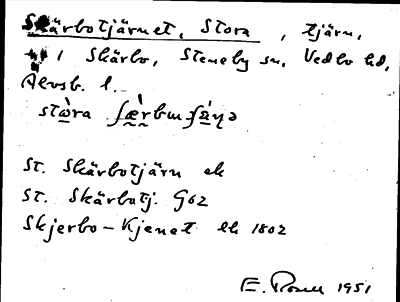 Skärbotjärnet, Stora, tjärn,
1 Skärbo, Steneby sn. Vedbo hd,
Älvsb. l.
St. Skärbotjärn ek
St. Skärbotj. G62
Skjerbo-Kjenet lk 1802
E. Rosell 1951